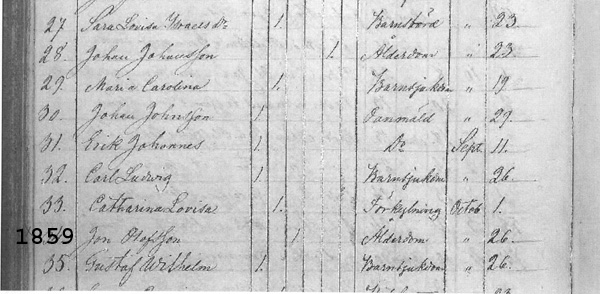 27. Sara Lovisa Israels Dr 1. Barnsbörd " 23.
28. Johan Johansson 1. Ålderdom " 23
29. Maria Carolina 1. Barnsjukdom " 19
30. Johan Johnsson 1. " 29
31. Erik Johannes 1. Do Sept. 11.
32. Carl Ludvig 1. Barnsjukdom " 26
33. Catharina Lovisa 1. Förkylning Octob 1.
1859 Jon Olofsson 1 Ålderdom " 26.
35. Gustaf Wilhelm 1. Barnsjukdom " 26.